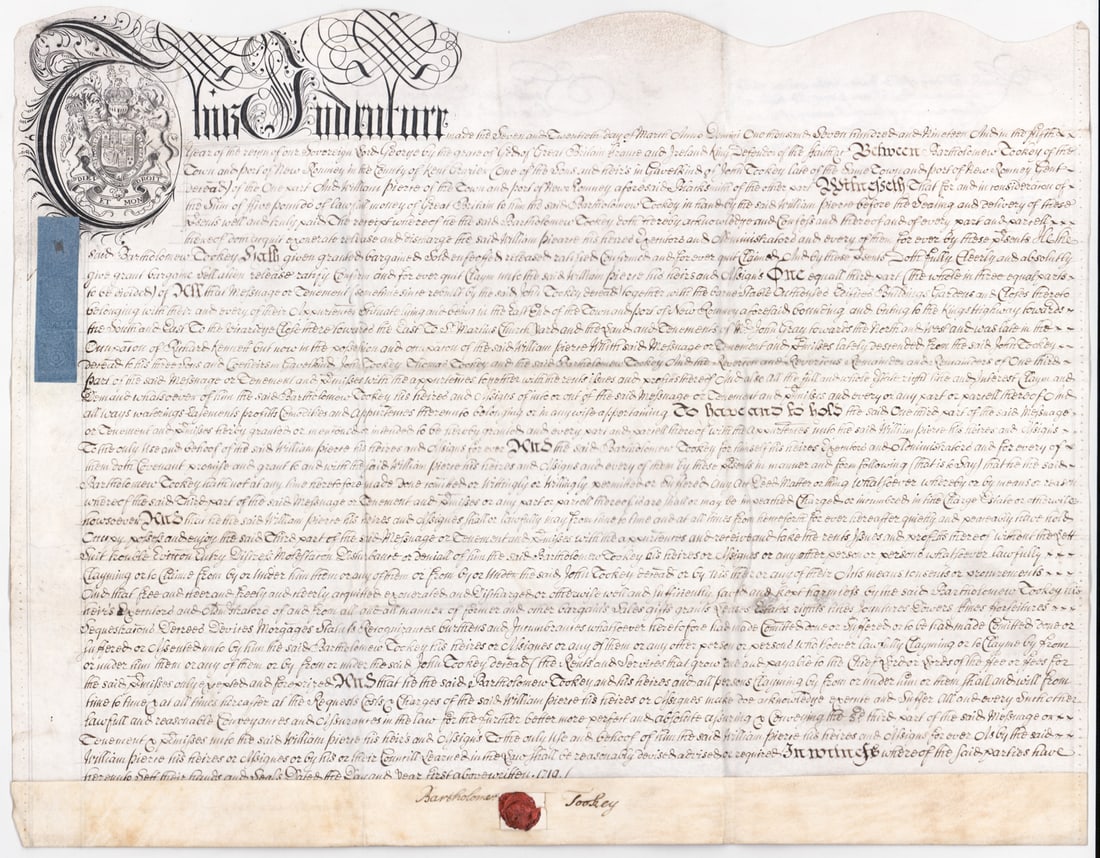 This Indenture made the Seven and Twentieth day of March Anno Domini One thousand Seven hundred and Nineteen And in the fifth
Year of the reign of our Sovereign Lord George by the grace of God of Great Britain France and Ireland King Defender of the Faith &c Between Bartholomew Tookey of the
Town and port of New Romney in the County of Kent One of the Sons and heirs in Gavelkind of John Tookey late of the same Town and port of New Romney Gent
deceased of the One part And William Pierce of the Town and Port of New Romney aforesaid of the other part Witnesseth That for and in consideration of
the Sum of five pounds of lawful money of Great Britain to him the said Bartholomew Tookey in hand by the said William Pierce before the Sealing and delivery of these
DIEU ET MON DROIT
presents well and truly paid The receipt whereof he the said Bartholomew Tookey doth hereby acknowledge and Confess and thereof and of every part and parcell
thereof doth acquit exonerate release and discharge the said William Pierce his heires Executors and Administrators and every of them for ever by these presents He the
said Bartholomew Tookey Hath given granted bargained sold enfeoffed released ratified Confirmed and for ever quit Claimed And by these presents Doth fully Clerely and absolutely
give grant bargaine sell alien release ratify Confirm and for ever quit Claim unto the said William Pierce his heires and Assigns One equall third part (the whole in three equall parts
to be divided) of All that Messuage or Tenement by the said John Tookey deceased together with the Stable Outhouses Edifices Buildings Gardens and Closes thereto
belonging with their and every of their Appurtenances Situate lying and being in the East End of the Town and port of New Romney aforesaid bounding and butting to the Kings highway towards
the South and East To the Close there towards the East To St Martins Church Yard and the Land and Tenement of John Gray towards the North and West and was late in the
Occupation of Richard Kennett but now in the possession and occupation of the said William Pierce Which said Messuage or Tenement and premises lately descended from the said John Tookey
deceased to his three Sons and Coheirs in Gavelkind John Tookey Thomas Tookey and the said Bartholomew Tookey And the Reversion and Reversions Remainder and Remainders of One third
part of the said Messuage or Tenement and premises with the appurtenances together with the rents issues and profits thereof And also all the full and whole Estate right title and Interest Claym and
Demand whatsoever of him the said Bartholomew Tookey his heires and Assigns of into or out of the said Messuage or Tenement and premises and every or any part or parcell thereof And
all ways waterings Easements profits Comodities and Appurtenances thereunto belonging or in any wise appertaining To have and to hold the said One third part of the said Messuage
or Tenement and premises hereby granted or mentioned or intended to be hereby granted and every part and parcell thereof with the appurtenances unto the said William Pierce his heires and Assigns
To the only Use and behoofe of the said William Pierce his heires and Assigns for ever And the said Bartholomew Tookey for himself his heires Executors and Administrators and for every of
them doth Covenant promise and grant to and with the said William Pierce his heires and Assigns and every of them by these presents in manner and form following (that is to say) that he the said
Bartholomew Tookey hath not at any time heretofore made done comitted or Wittingly or Willingly permitted or suffered any Act Deed Matter or thing whatsoever whereby or by means or reason
whereof the said Third part of the said Messuage or Tenement and premises or any part or parcell thereof is are shall or may be impeached Charged or incumbred in title Charge Estate or otherwise
howsoever And that he the said William Pierce his heires and Assignes shall or lawfully may from time to time and at all times from henceforth for ever hereafter quietly and peaceably have hold
Occupy possess and enjoy the said Third part of the said Messuage or Tenement and premises with the appurtenances and receive and take the rents issues and profits thereof without the Lett
Suit trouble Eviction Entry Distress Molestation Disturbance or Denial of him the said Bartholomew Tookey his heires or Assignes or any other person or persons whatsoever lawfully
Clayming or to Claime from by or under him them or any of them or from by or under the said John Tookey deceased or by his their or any of their Acts means consents or procurements
And that free and cleer and freely and cleerly acquitted exonerated and discharged or otherwise well and sufficiently saved and kept harmless by the said Bartholomew Tookey his
heirs Executors and Administrators of and from all and all manner of former and other bargains Sales gifts grants Leases Estates rights titles Jointures Dowers Fines forfeitures
Sequestrations Decrees Devises Mortgages Statutes Recognizances burthens and Incumbrances whatsoever heretofore had made Comitted done or Suffered or to be had made Comitted done or
suffered or Assented unto by him the said Bartholomew Tookey his heires or Assignes or any of them or any other person or persons whatsoever lawfully Clayming or to Clayme by from
or under him them or any of them or by from or under the said John Tookey deceased (the Rents and Services that grow due and payable to the Chief Lord or Lords of the fee or fees for
the said premises only excepted and foreprized) And that he the said Bartholomew Tookey and his heires and all persons Clayming by from or under him or them shall and will from
time to time & at all times hereafter at the Requests Costs & Charges of the said William Pierce his heires or Assignes make doe acknowledge execute and Suffer All and every such other
lawfull and reasonable Conveyances and Assurances in the law for the further better more perfect and absolute assuring & Conveying the sd third part of the said Messuage or
Tenement & premisses unto the said William Pierce his heirs and Assigns To the only Use and behoof of him the said William Pierce his heires and Assigns for ever As by the said
William Pierce his heires or Assignes or by his or their Councill Learned in the Law shall be reasonably devised advised or required In witness whereof the said parties have
hereunto Sett their hands and Seals Dated the Day and Year first above written . 1719
Bartholomew Tookey